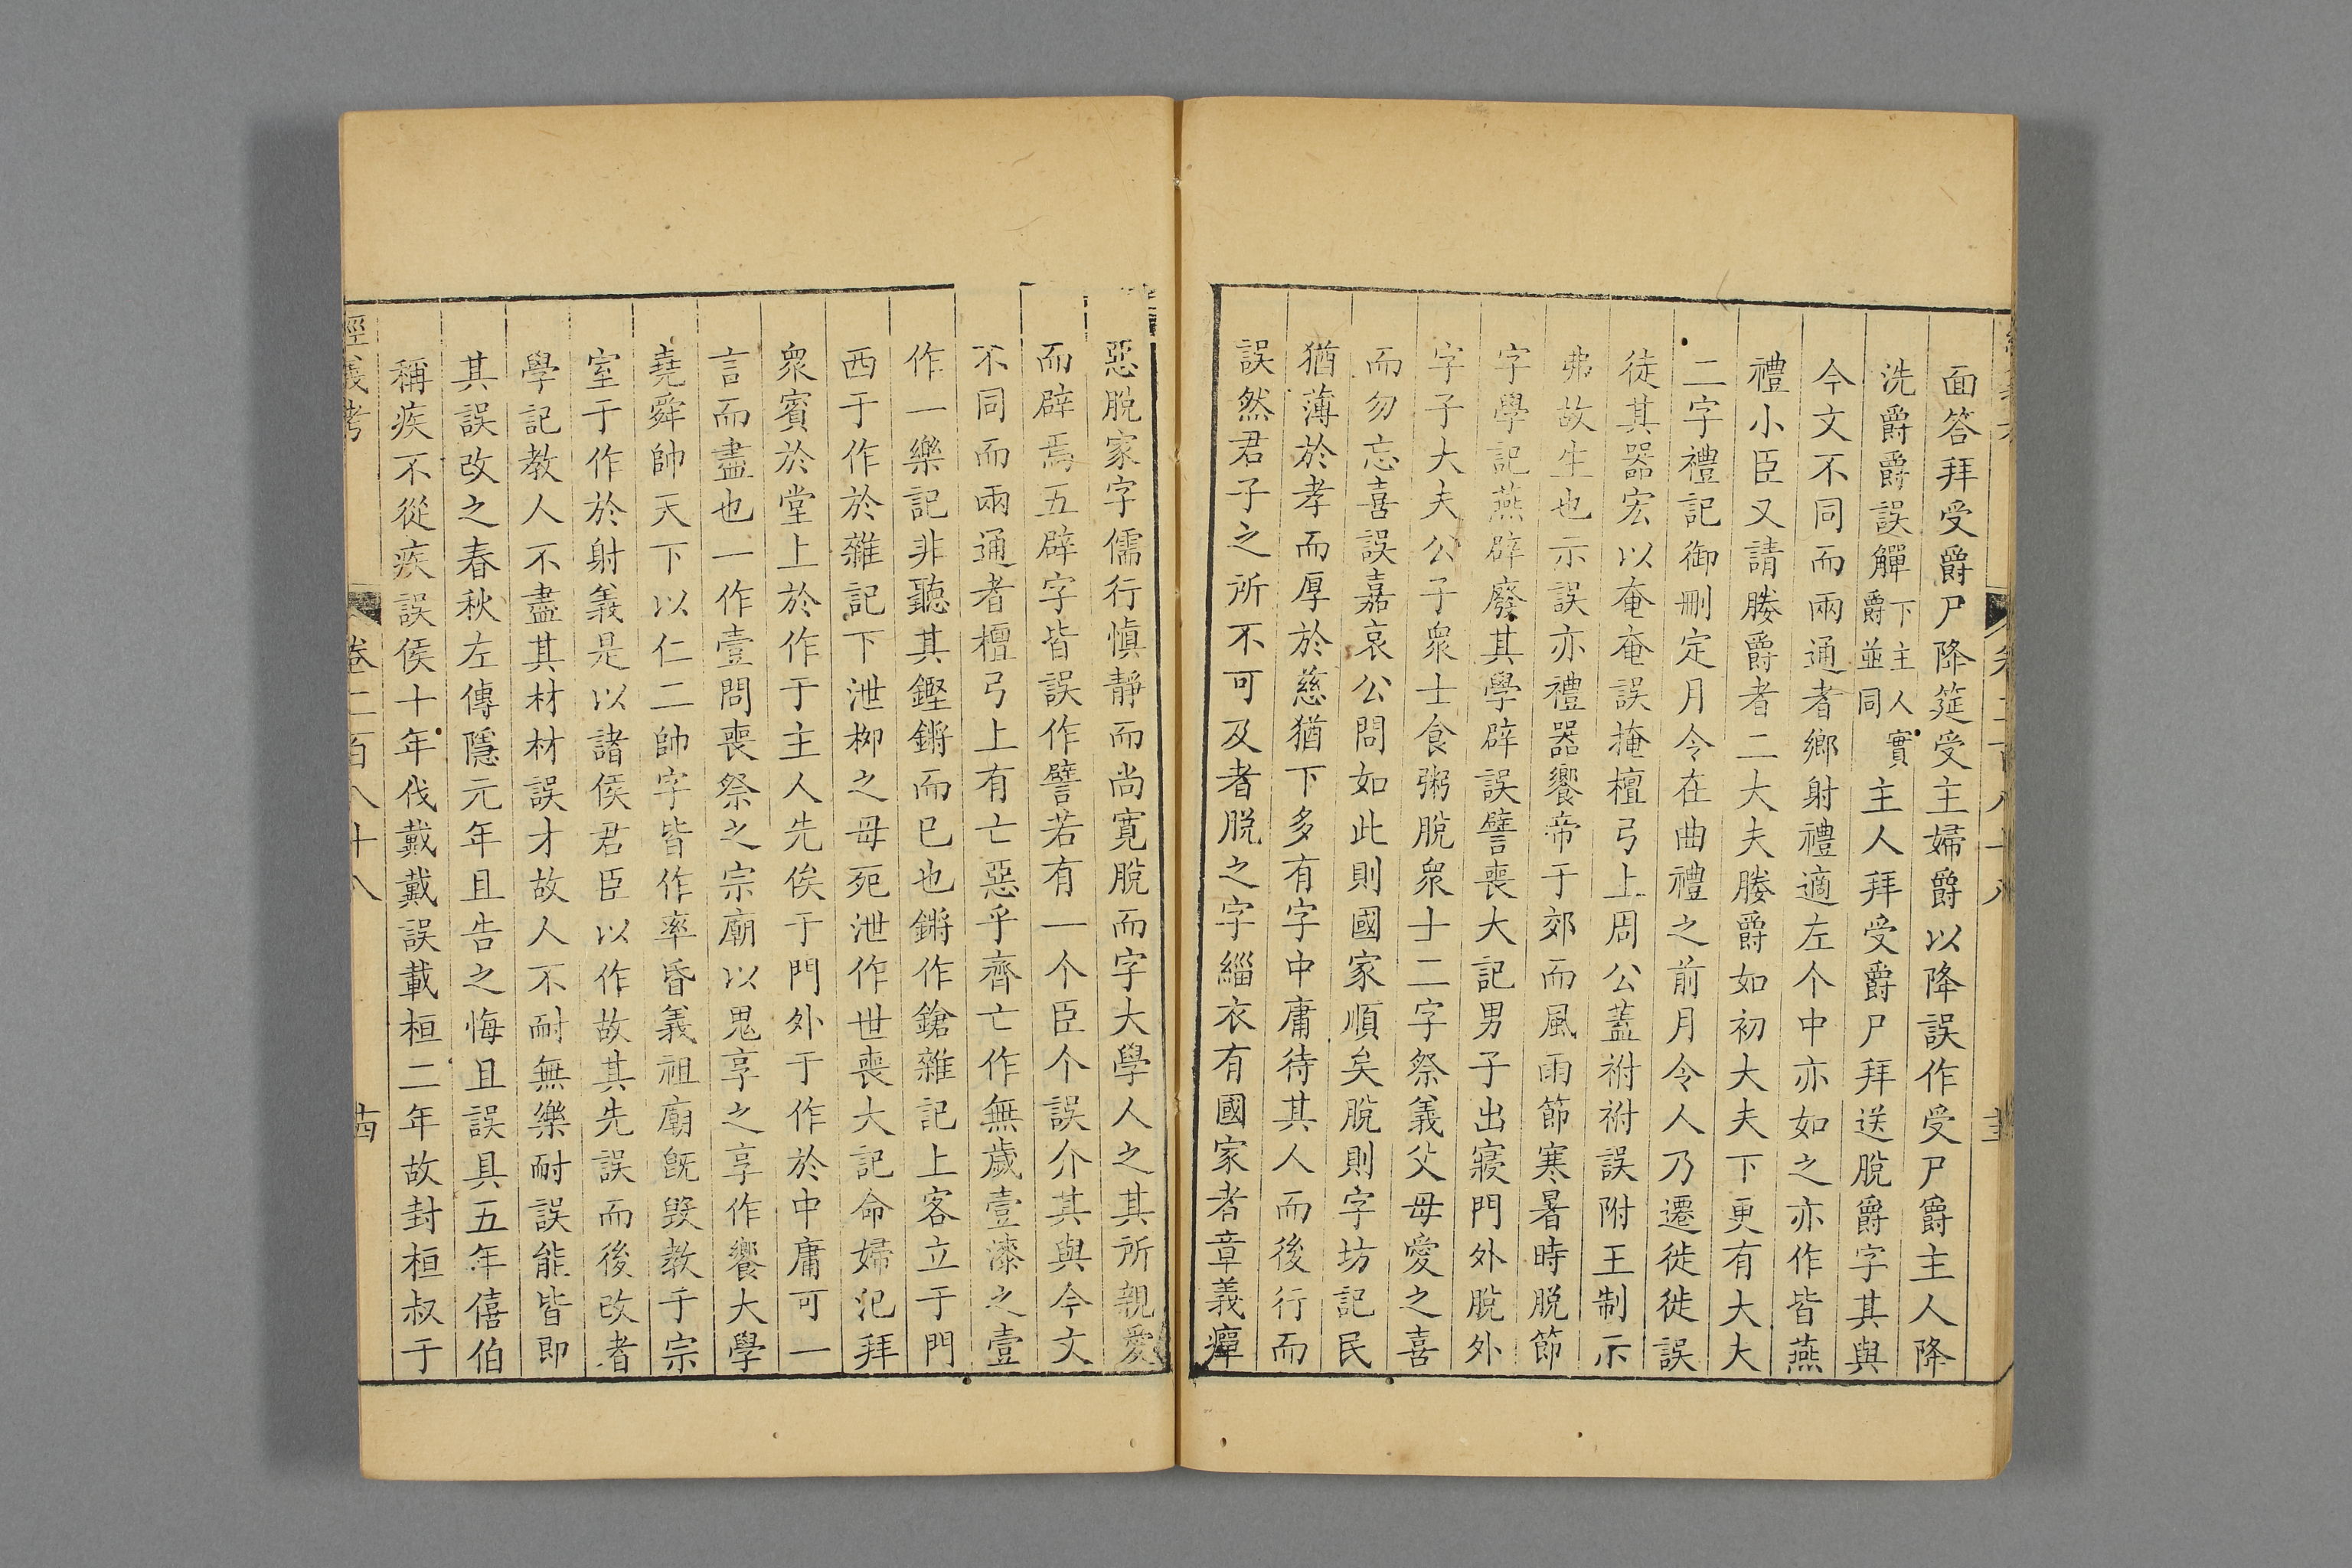 面答拜受爵尸降筵受主婦爵以降誤作受尸爵主人降
洗爵爵誤觶下主人實爵並同主人拜受爵尸拜送脫爵字其與
今文不同而兩通者鄉射禮適左个中亦如之亦作皆燕
禮小臣又請媵爵者二大夫媵爵如初大夫下更有大夫
二字禮記御刪定月令在曲禮之前月令人乃遷徙徙誤
徒其器宏以奄奄誤掩檀弓上周公蓋祔祔誤附王制示
弗故生也示誤亦禮器饗帝于郊而風雨節寒暑時脫節
字學記燕辟廢其學辟誤譬喪大記男子出寢門外脫外
字子大夫公子衆士食粥脫衆士二字祭義父母愛之喜
而勿忘喜誤嘉哀公問如此則國家順矣脫則字坊記民
猶薄於孝而厚於慈猶下多有字中庸待其人而後行而
誤然君子之所不可及者脫之字緇衣有國家者章義癉
惡脫家字儒行慎靜而尚寬脫而字大學人之其所親愛
而辟焉五辟字皆誤作譬若有一个臣个誤介其與今文
不同而兩通者檀弓上有亡惡乎齊亡作無歲壹漆之壹
作一樂記非聽其鏗鏘而已也鏘作鎗雜記上客立于門
西于作於雜記下泄柳之母死泄作世喪大記命婦汜拜
衆賓於堂上於作于主人先俟于門外于作於中庸可一
言而盡也一作壹問喪祭之宗廟以鬼享之享作饗大學
堯舜帥天下以仁二帥字皆作率昏義祖廟既毀教于宗
室于作於射義是以諸侯君臣以作故其先誤而後改者
學記教人不盡其材材誤才故人不耐無樂耐誤能皆即
其誤改之春秋左傳隱元年且告之悔且誤具五年僖伯
稱疾不從疾誤侯十年伐戴戴誤載桓二年故封桓叔于
經義考
卷二百八十八
十四